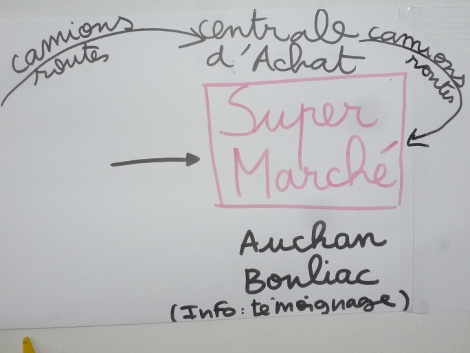 camions
routes
centrale
d'Achat
camions
routes
Super
Marché
Auchan
Bouliac
(Info: témoignage)